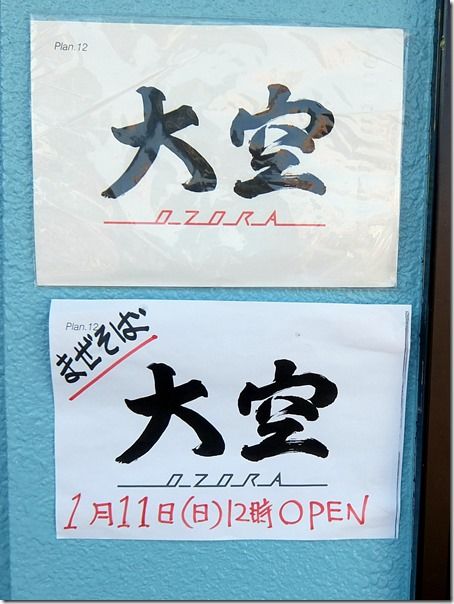 Plan.12
大空
OZORA
Plan.12
まぜそば
大空
OZORA
1月11日(日)12時OPEN